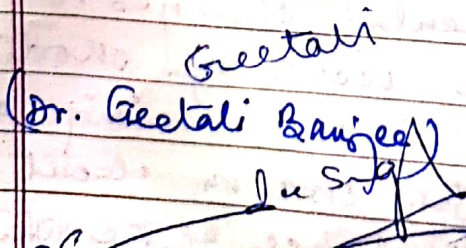 Geetali
(Dr. Geetali Banerjee)